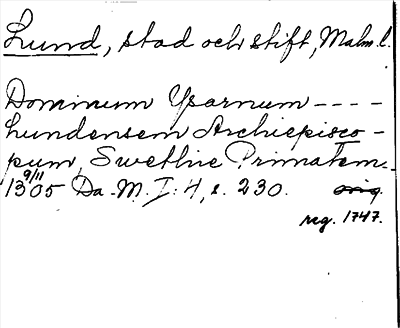 Lund, stad och stift, Malm. l.
Dominum Ysarnum - - - -
Lundensem Archiepisco-
pum, Swethie Primatem.
9/11
1305 Da. M. I: 4, s. 230. orig.
reg. 1747.